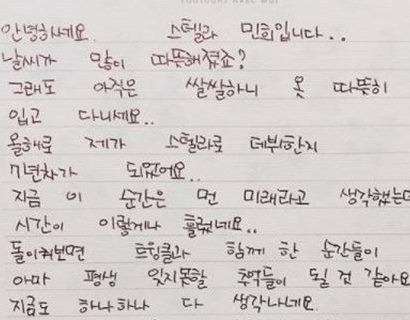 안녕하세요. 스텔라 민희입니다..
날씨가 많이 따뜻해졌죠?
그래도 아직은 쌀쌀하니 옷 따뜻히
입고 다니세요..
올해로 제가 스텔라로 데뷔한지
7년차가 되었어요..
지금 이 순간은 먼 미래라고 생각했는데
시간이 이렇게나 흘렀네요..
돌이켜보면 트윙클과 함께 한 순간들이
아마 평생 잊지못할 추억들이 될 것 같아요
지금도 하나하나 다 생각나네요.